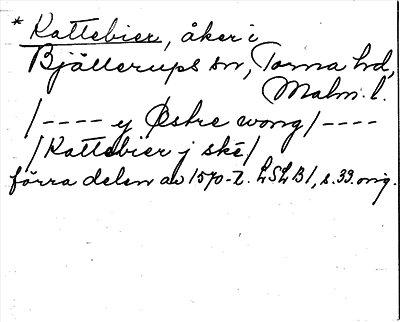 * Kattebier, åker i
Bjällerups sn, Torna hd,
Malm. l.
/---- ej Østre wong/----
/Kattebier j ské/
förra delen av 1570-t. LSLB1, s.33.orig.